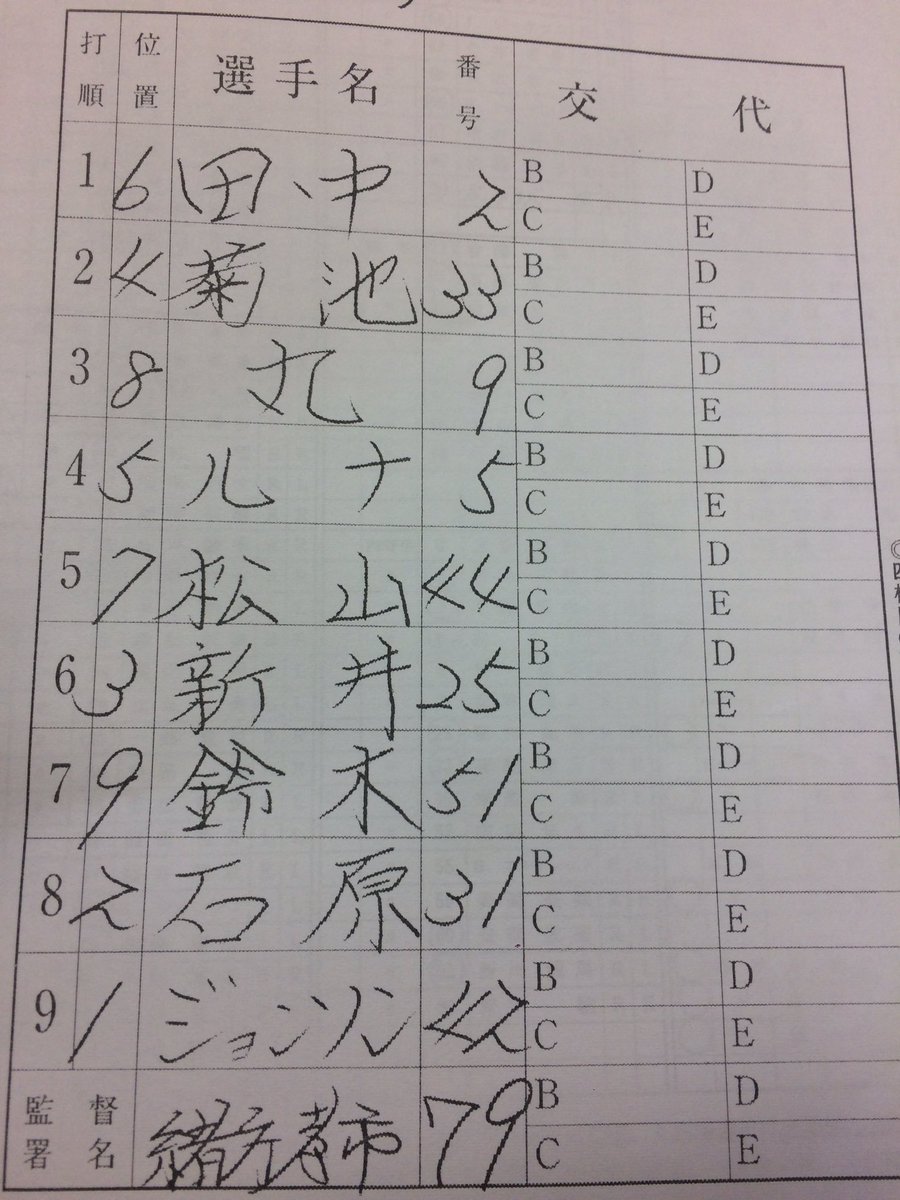 打順 位置 選手名 番号 交代
1 6 田中 2 B D
C E
2 4 菊池 33 B D
C E
3 8 丸 9 B D
C E
4 5 ルナ 5 B D
C E
5 7 松山 44 B D
C E
6 3 新井 25 B D
C E
7 9 鈴木 51 B D
C E
8 2 石原 31 B D
C E
9 1 ジョンソン 42 B D
C E
監督署名 緒方孝市 79 B D
C E